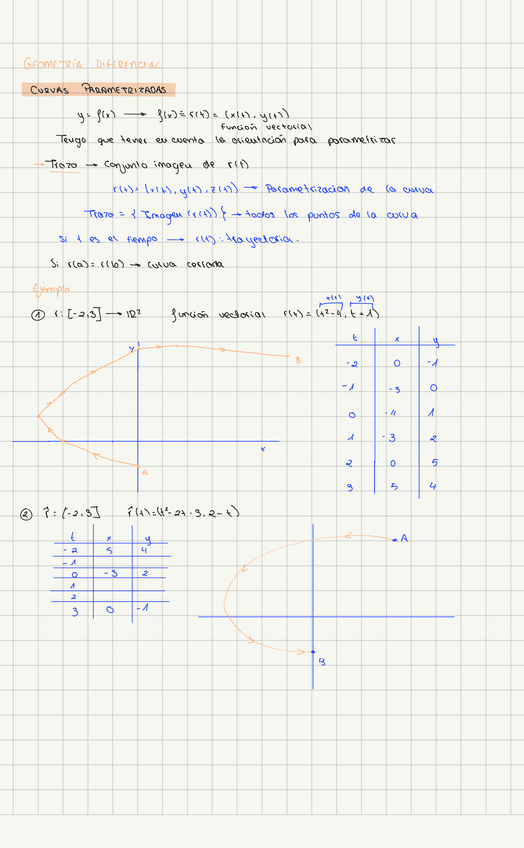 GEOMETRÍA DIFERENCIAL
CURVAS PARAMETRIZADAS
y = f(x) → f(x) ≡ r(t) = (x(t), y(t))
función vectorial
Tengo que tener en cuenta la orientación para parametrizar
→ Trazo → Conjunto imagen de r(t)
r(t) = (x(t), y(t), z(t)) → Parametrizacion de la curva
Trazo = { Imagen (r(t)) } → todos los puntos de la curva
Si t es el tiempo → r(t): trayectoria.
Si r(a) = r(b) → curva cerrada
Ejemplo:
x(t) y(t)
① r: [-2,3] → ℝ² función vectorial r(t) = (t²-4, t+1)
t x y
-2 0 -1
-1 -3 0
0 -4 1
1 -3 2
2 0 5
3 5 4
y
B
x
A
② r̂ = [-2,3] r̂(t) = (t²-2t-3, 2-t)
t x y
-2 5 4
-1
0 -3 2
1
2
3 0 -1
A
B